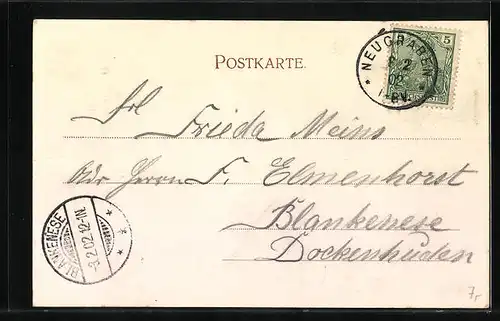 POSTKARTE.
NEUGRABEN
2
02
5
Frl Frieda Meins
Adr Herrn F. Elmenhorst
Blankenese
Dockenhuden
BLANKENESE
-8.2.02.12-1N.
7,-